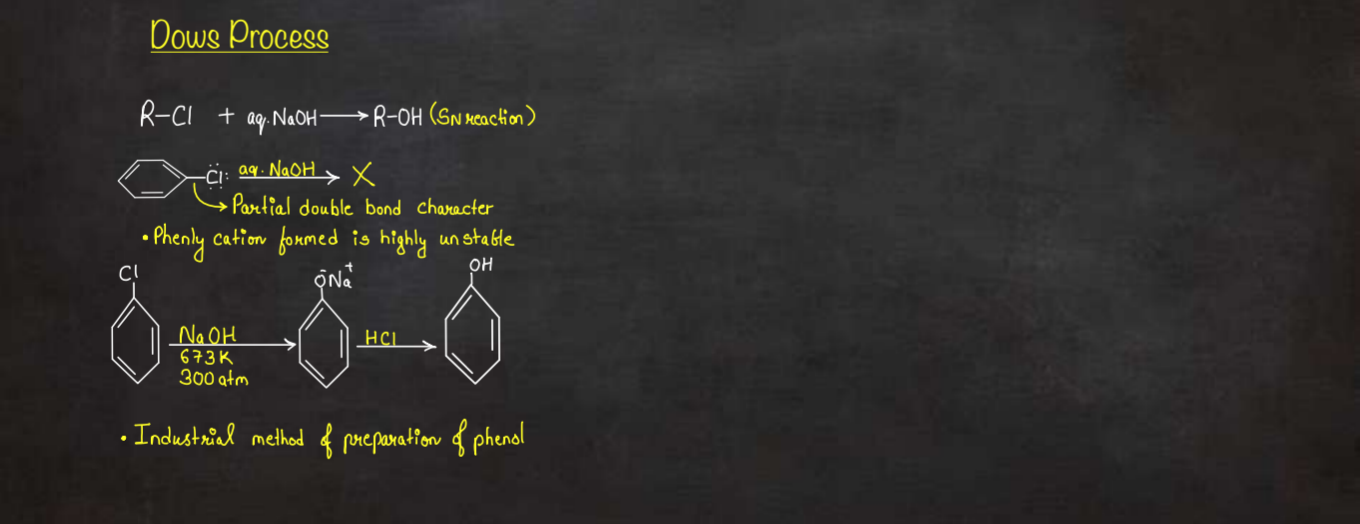 Dows Process
R-Cl + aq. NaOH → R-OH (SN reaction)
Cl: aq. NaOH → X
→ Partial double bond character
• Phenly cation formed is highly unstable
Cl ŌNa⁺ OH
NaOH HCl
673K
300 atm
• Industrial method of preparation of phenol